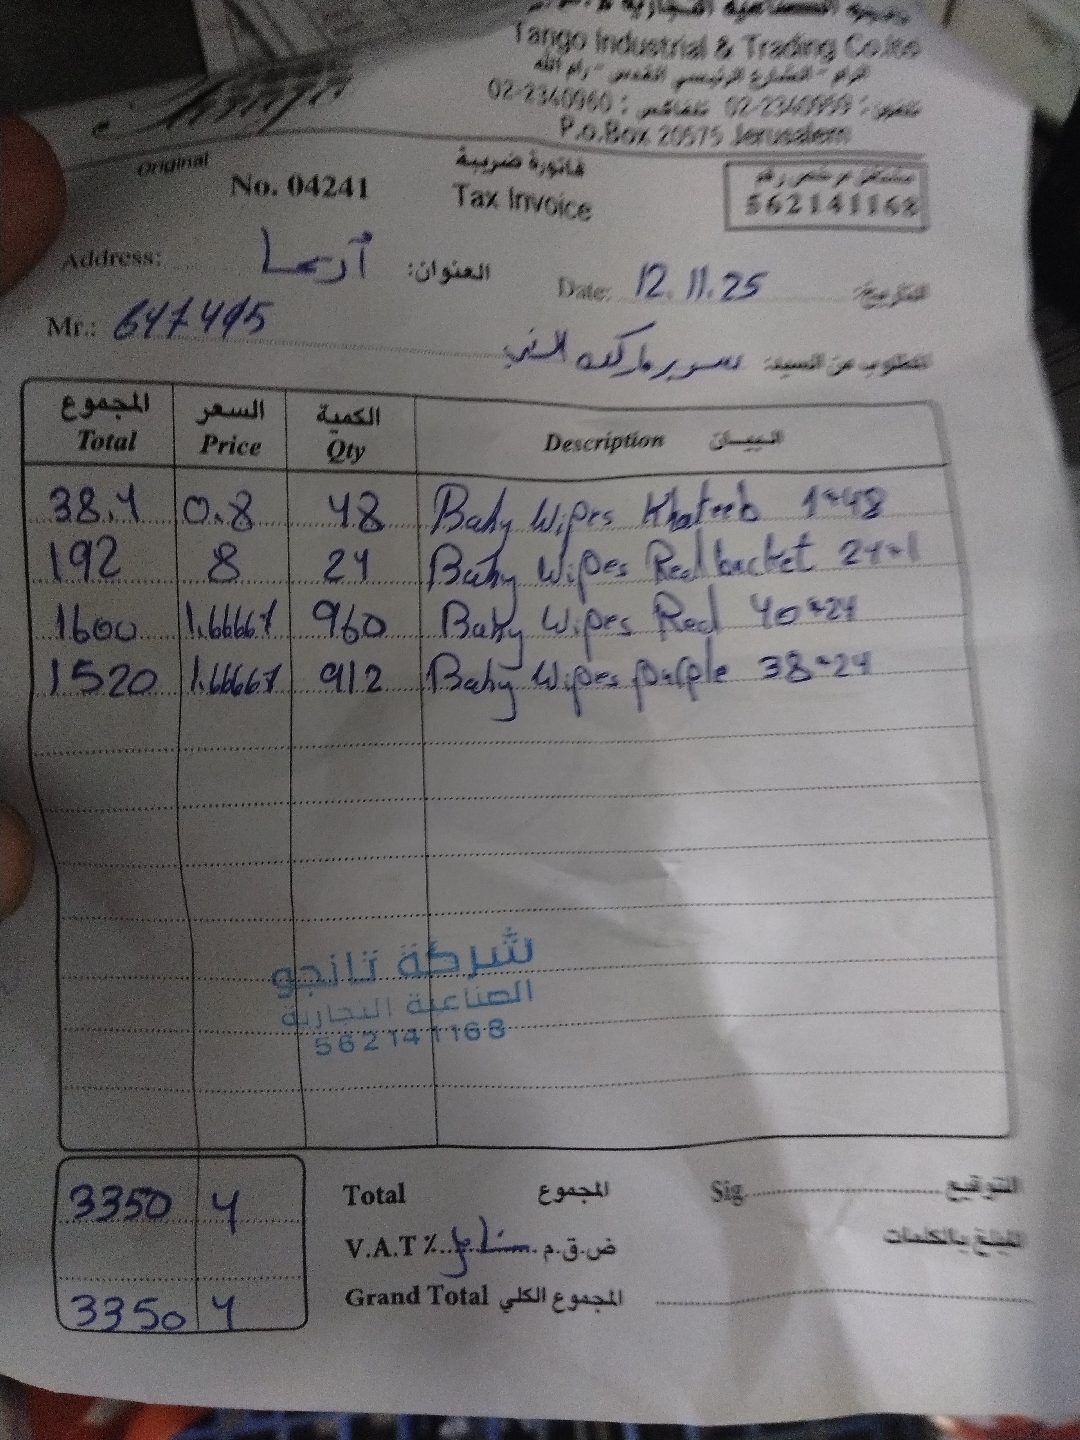 Tango Industrial & Trading Co.ltd
الرام - الشارع الرئيسي القدس - رام الله
تلفون : 02-2340959 تلفاكس : 02-2340960
P.o.Box 20575 Jerusalem
Original
No. 04241
فاتورة ضريبة
Tax Invoice
مشتغل مرخص رقم
562141168
Address: أريحا العنوان:
Date: 12.11.25 التاريخ:
Mr.: 647495
المطلوب من السيد: سوبر ماركت
المجموع السعر الكمية البيـــان
Total Price Qty Description
38.4 0.8 48 Baby Wipes Khateeb 1*48
192 8 24 Baby Wipes Red bucket 24*1
1600 1.66667 960 Baby Wipes Red 40*24
1520 1.66667 912 Baby Wipes purple 38*24
شركة تانجو
الصناعية التجارية
562141168
3350 4 Total المجموع Sig التوقيع
V.A.T ٪ شامل ض.ق.م المبلغ بالكلمات
3350 4 Grand Total المجموع الكلي